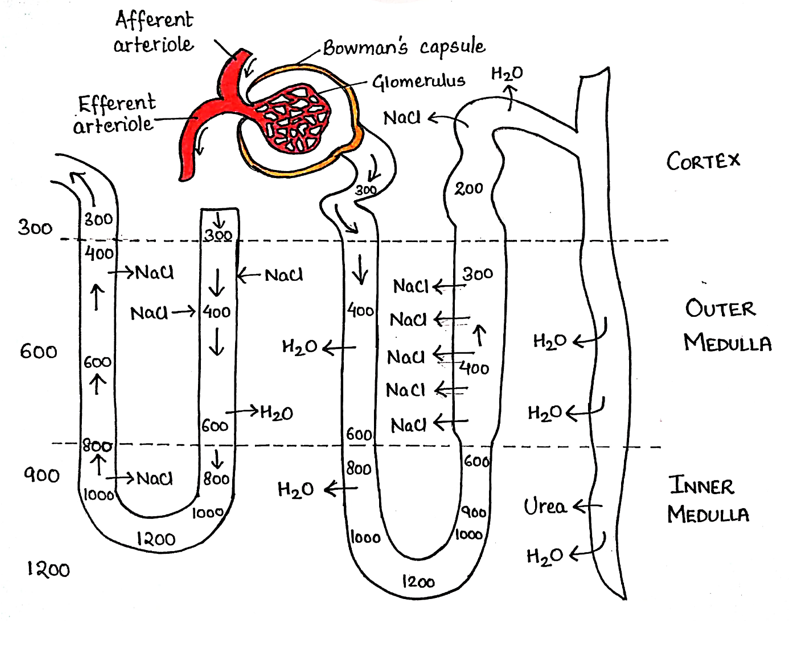 Afferent
arteriole
Bowman's capsule
Glomerulus
H₂O
Efferent
arteriole
NaCl
CORTEX
300
200
300
300
300
400
NaCl
NaCl
300
NaCl
NaCl
400
400
NaCl
OUTER
MEDULLA
600
600
H₂O
NaCl
400
H₂O
NaCl
H₂O
600
NaCl
600
H₂O
800
NaCl
1000
800
1000
1200
900
1200
800
H₂O
1000
600
900
1000
1200
Urea
H₂O
INNER
MEDULLA